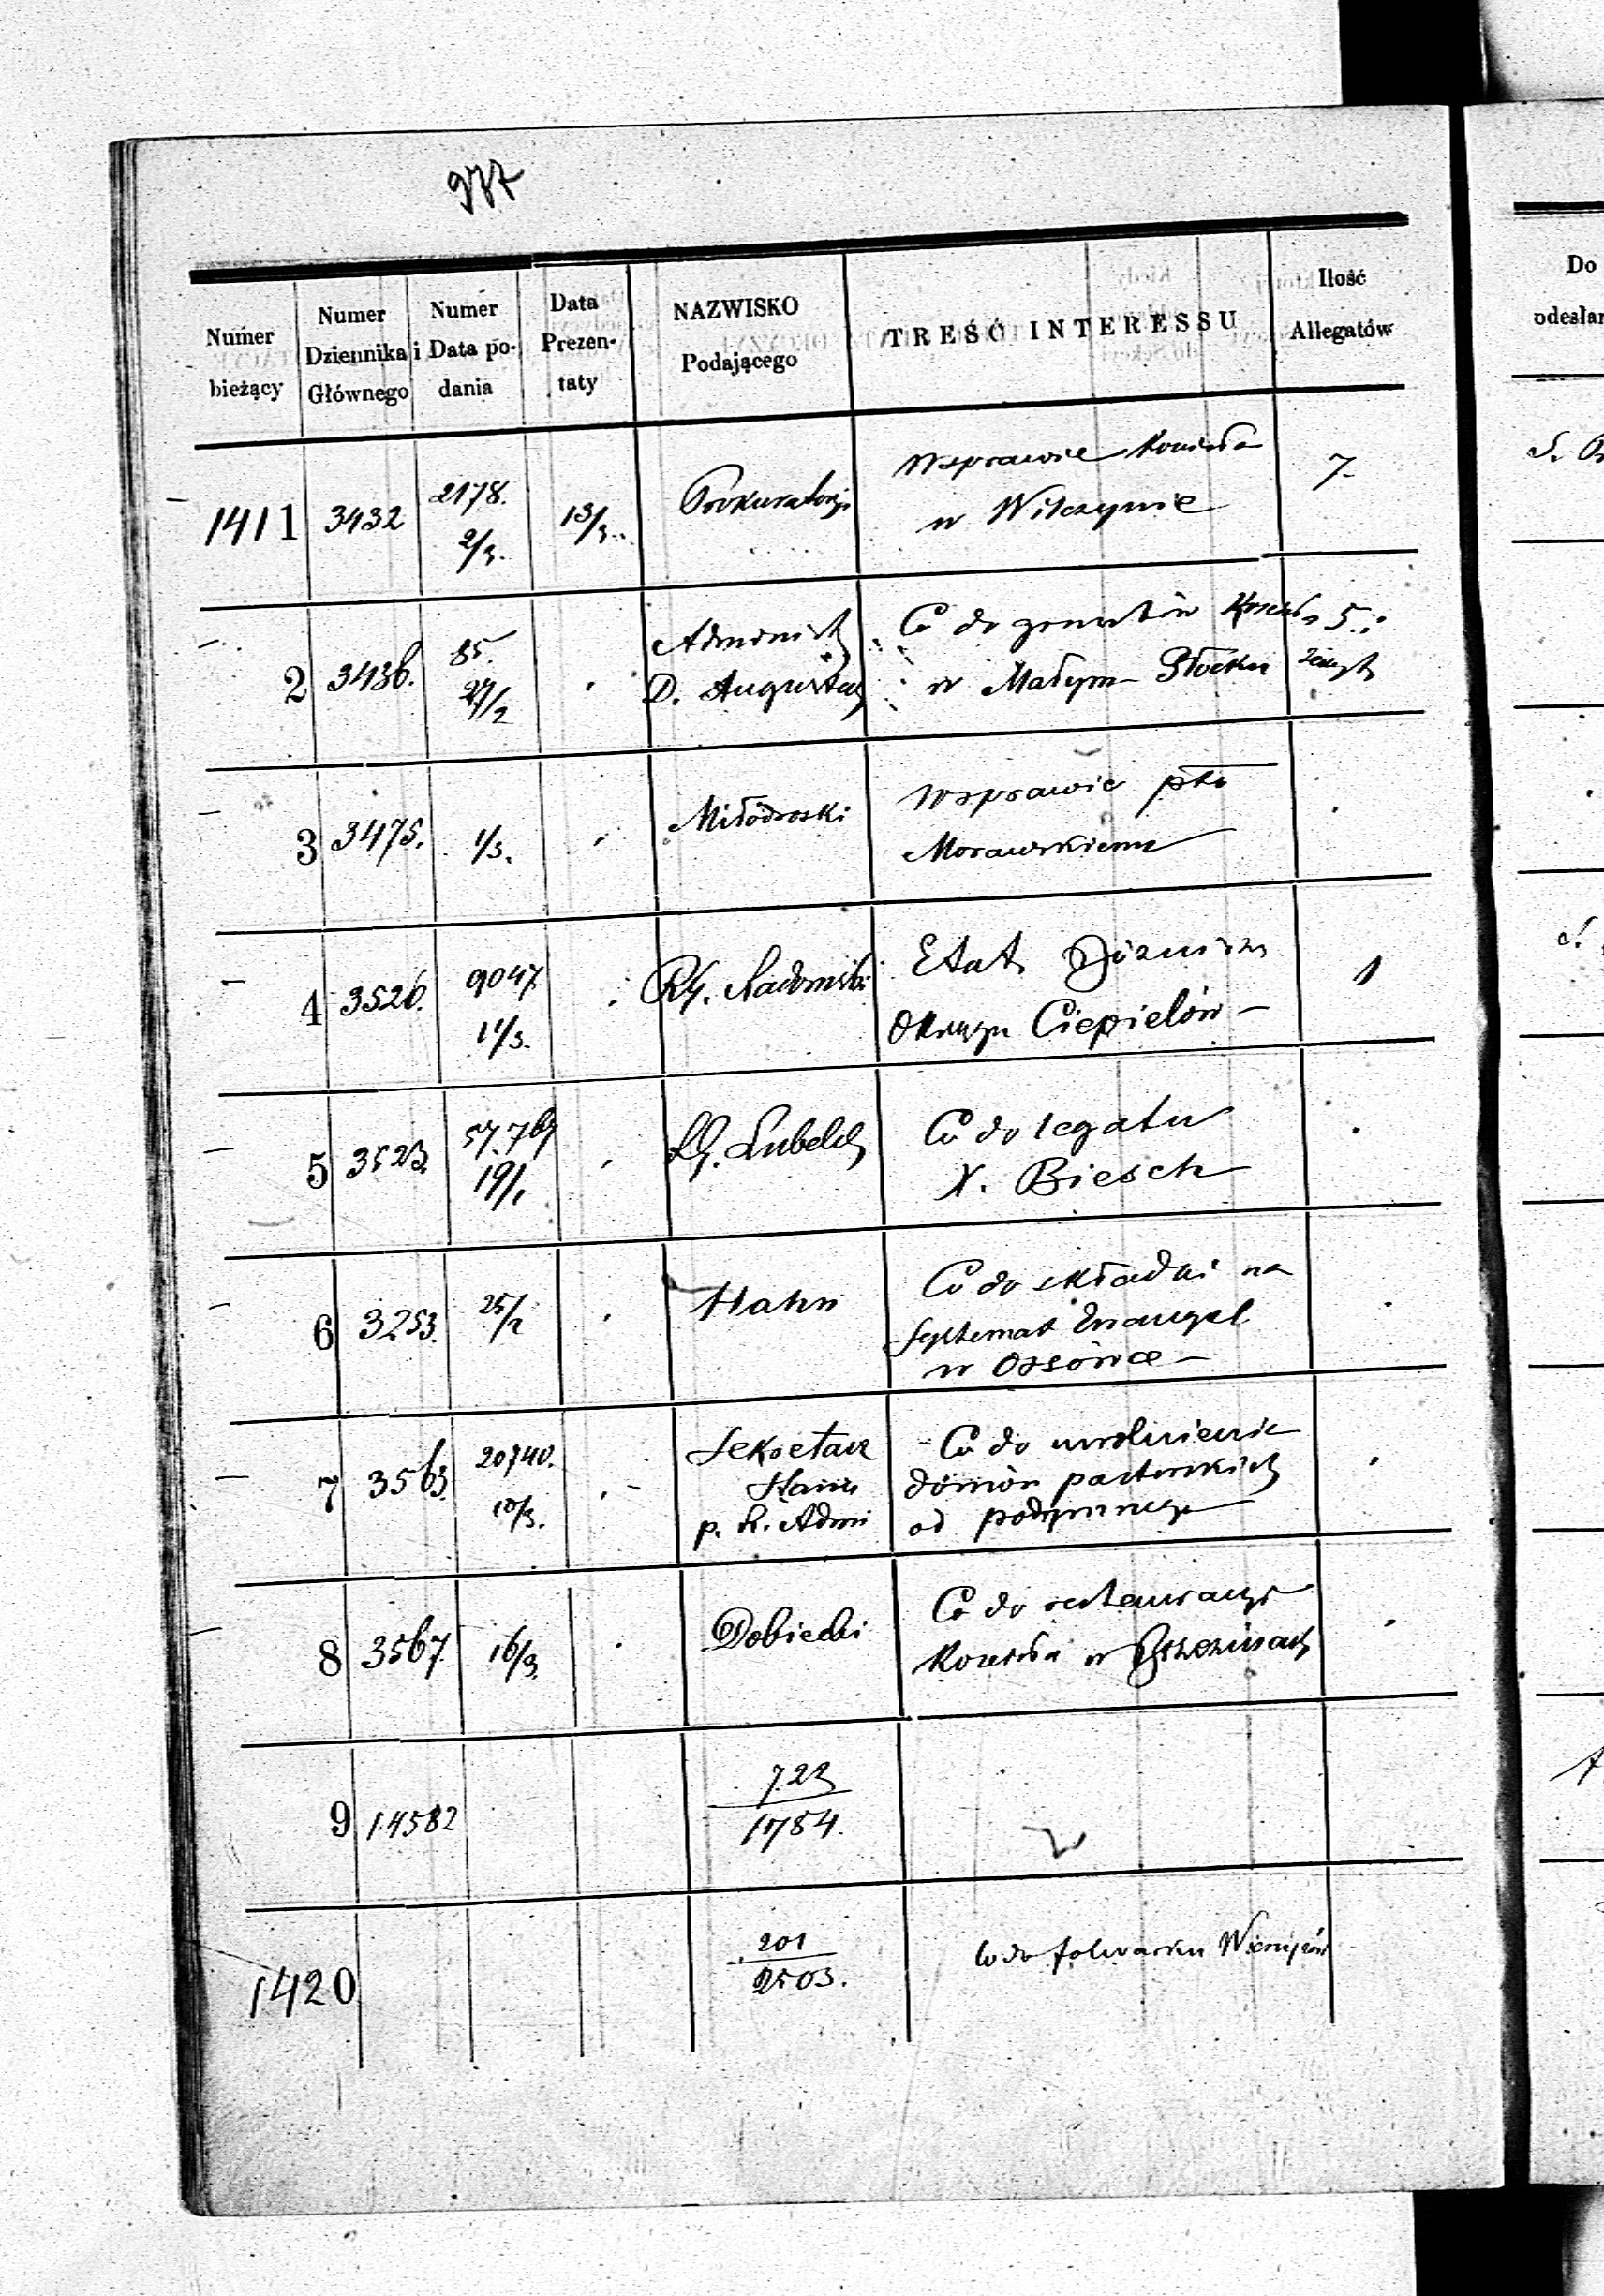 977
Numer bieżący
Numer Dziennika Głównego
Numer i Data podania
Data Prezentaty
NAZWISKO Podającego
TREŚĆ INTERESSU
Ilość Allegatów
Do
odesłan
1411 3432 2178. 2/3. 13/3. Prokuratorja
W sprawie Kościoła
w Wilczynie
7
2 3436. 85. 27/2
Administ
D. Augustow
Co do gruntów
w Małym Płocku
5
3 3475. 1/3.
W sprawie pko
Morawskiemu
4 3526. 9047 11/3. RG. Radomski
Etat
Okręgu Ciepielów
1
5 3523. 57.769 19/1 RG. Lubelsk
Co do legatu
X. Biesch
6 3253. 25/2 Hahn
Co do składki na
Systemat Ewangel
w Ossówce
7 3563. 20740. 10/3.
Sekretarz
Stanu
p. R. Admi
Co do uwolnienia
domów pastorskich
od podymnego
8 3567. 16/3. Dobiecki
Co do restauracyi
Kościoła w Brzezinach
9 14582
723
1784.
1420
201
2503.
Co do folwarku